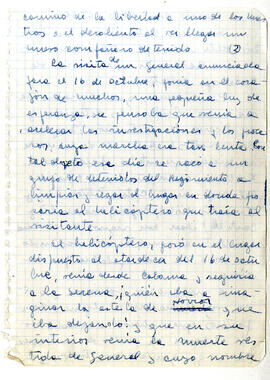 camino de la libertad a uno de los nues
tros o el desaliento al ver llegar un
nuevo compañero detenido. (2)
La visita de un general anunciada
para el 16 de octubre, ponía en el cora-
zón de muchos, una pequeña luz de
esperanza, se pensaba que venía a
acelerar las investigaciones y los proce
sos, cuya marcha era tan lenta. Con
tal objeto ese día se sacó a un
grupo de detenidos del regimiento a
limpiar y regar el lugar en donde po
saría el helicóptero que traía al
visitante.
El helicóptero, posó en el lugar
dispuesto el atardecer del 16 de octu
bre, venía desde Calama, y seguiría
a La Serena, ¡quién iba a ima-
ginar la estela de horror que
iba dejando! y que en su
interior venía la muerte ves
tida de General y cuyo nombre